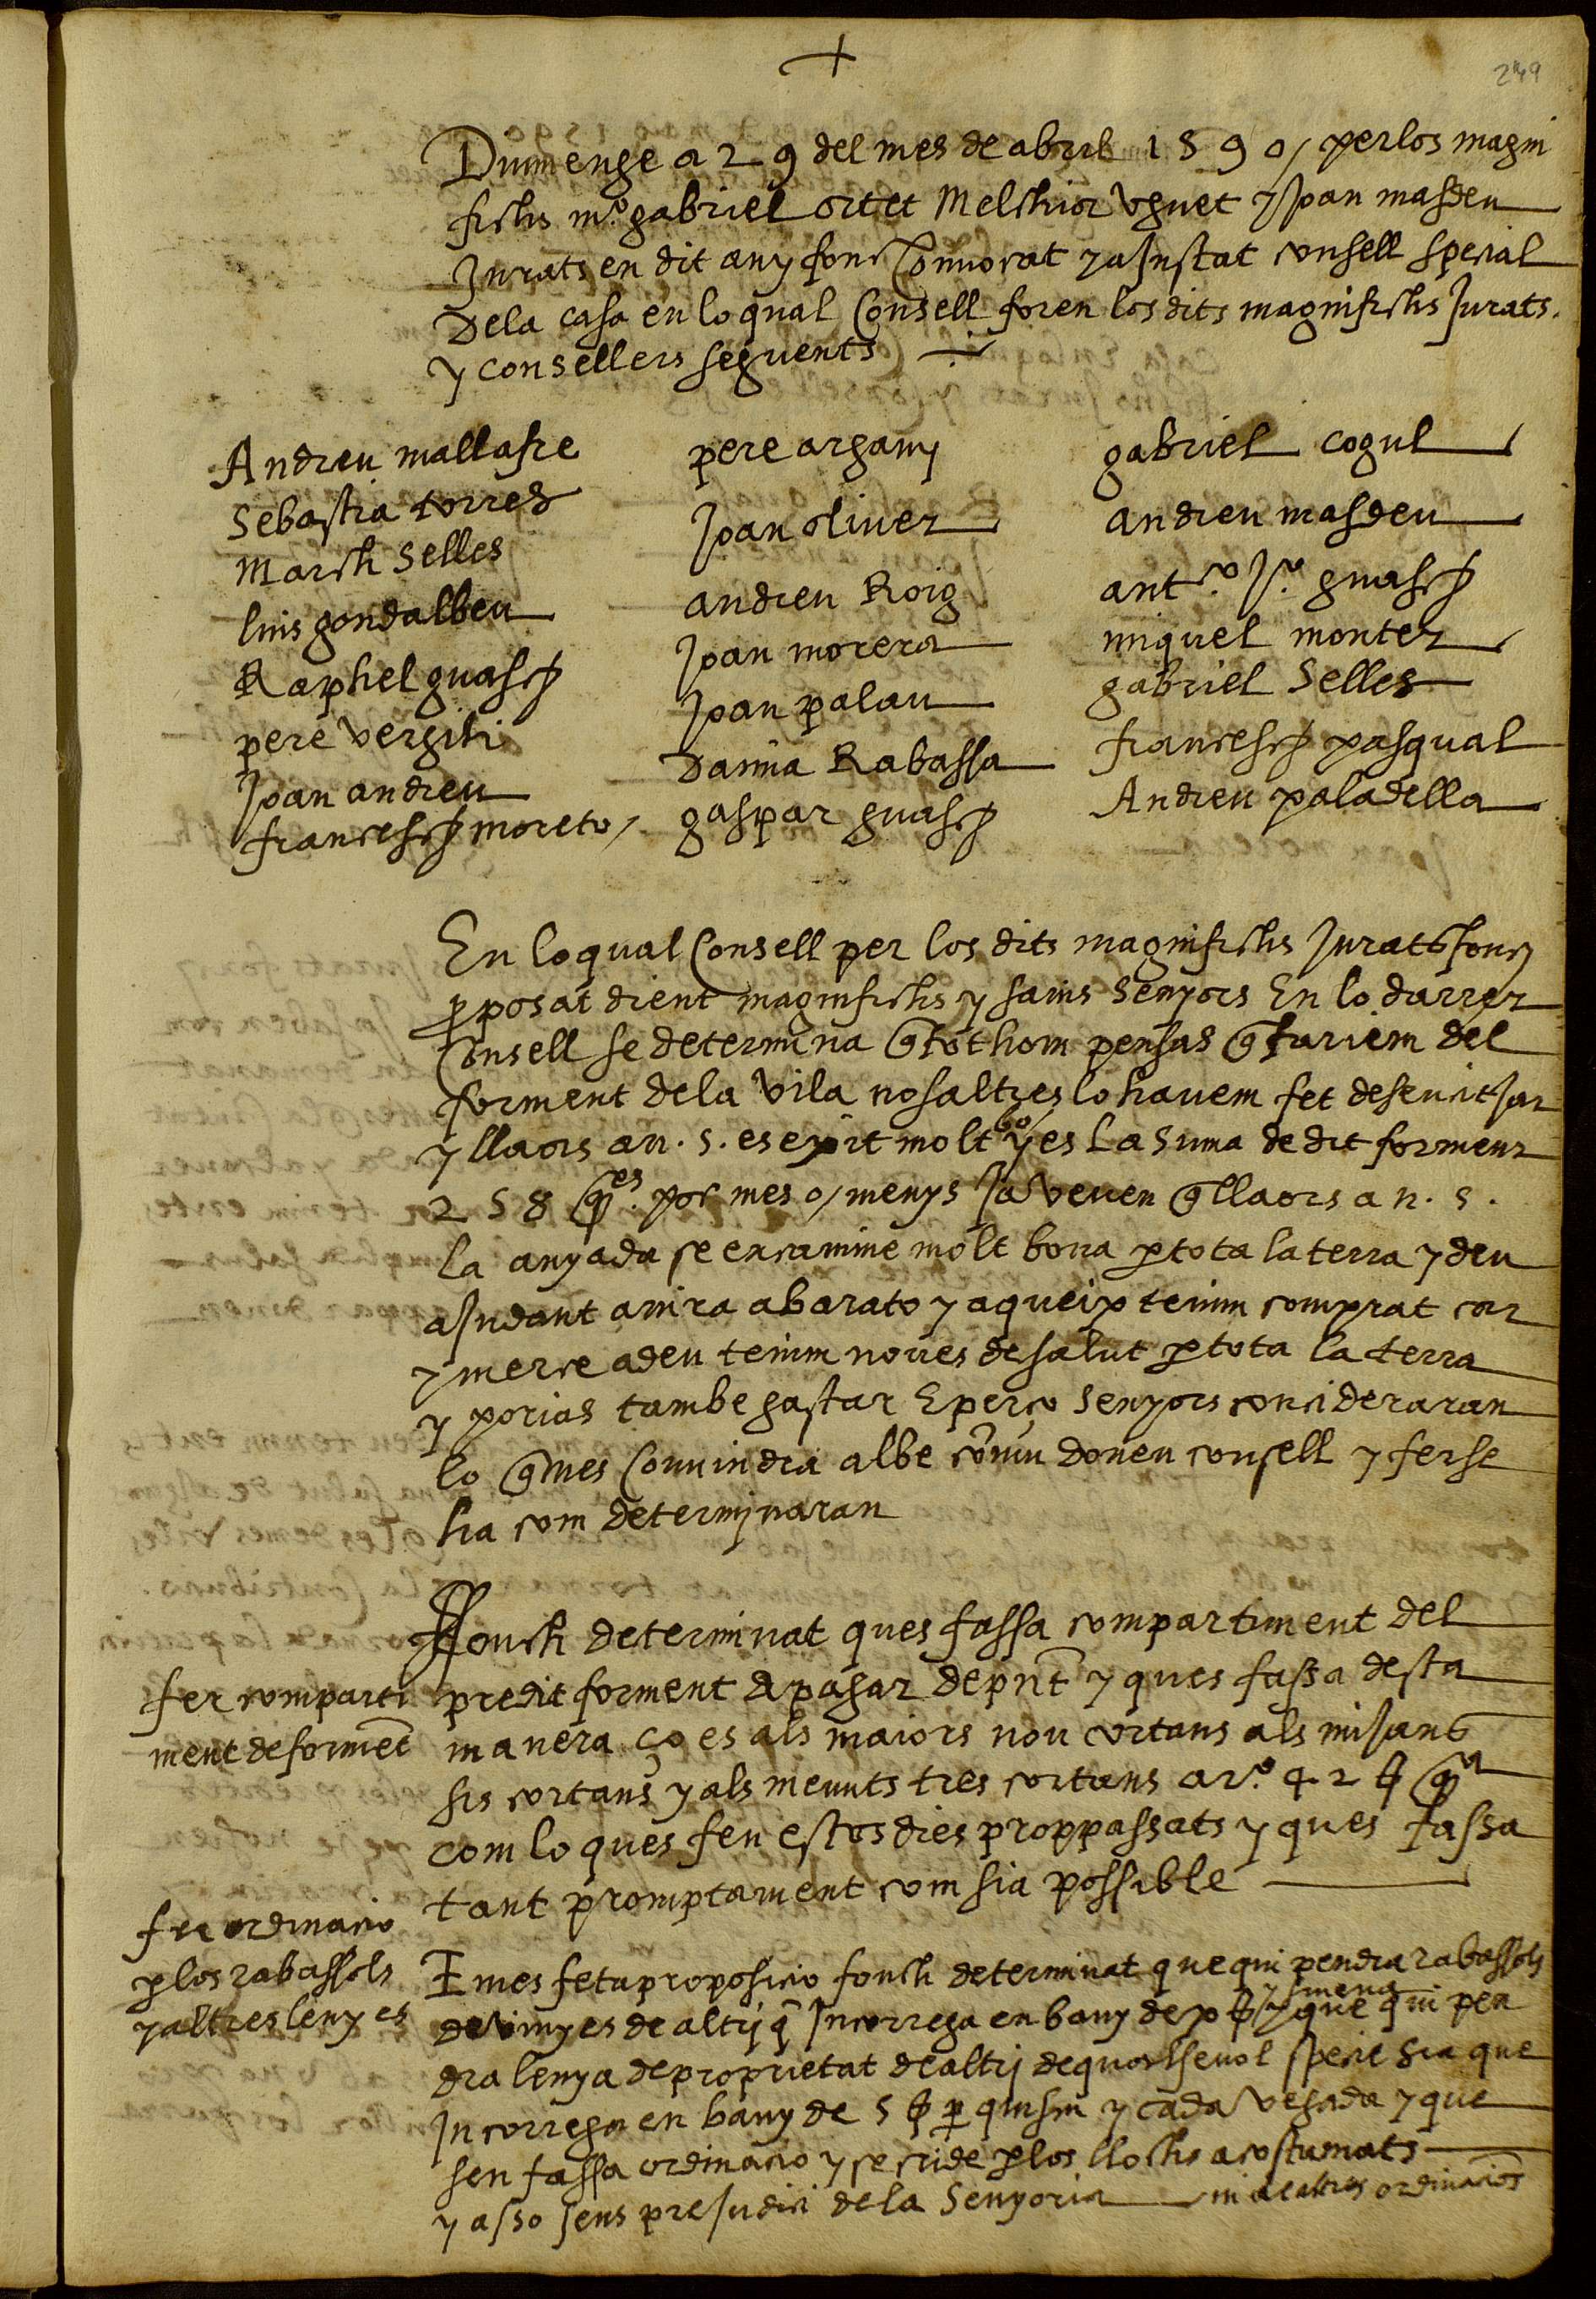 249
Diumenge a 29 del mes de abril 1590 / per los magni
fichs mº. gabriel ortet Melchior Vguet y Joan masdeu
Jurats en dit any fonc Convocat y aJustat consell special
Dela casa en lo qual Consell foren los dits magnifichs Jurats.
y consellers seguents
Andreu mallafre
Sebastia torres
March Selles
luis gondalbeu
Raphel guasch
pere Vergili
Joan andreu
francesch moreto /
pere argany
Joan oliver
andreu Roig
Joan morera
Joan palau
Damia Rabassa
gaspar guasch
gabriel cogul
andreu masdeu
antº. Jº. guasch
miquel monter
gabriel Selles
francesch pasqual
Andreu paladella
En lo qual Consell per los dits magnifichs Jurats fonch
pposat dient magnifichs y savis Senyors En lo darrer
Consell se determina q tothom pensas q fariem del
forment dela Vila nosaltres lo havem fet desenitJar
y llaors a n. s. es exit molt bo / y es La Suma de dit forment
258 qres. poc mes o / menys Ja veuen q llaors a n. s.
la anyada se encamine molt bona p tota la terra y deu
aJudant anira a barato y aqueix tenim comprat car
y merce a deu tenim noves de salut p tota la terra
y porias tambe gastar E perço Senyors concideraran
lo q mes Convindra al be comu donen consell y ferse
ha com determinaran
Fonch determinat ques fassa compartiment del
predit forment a pagar de pnt y ques fassa desta
manera ço es als maiors nou cortans als miJans
sis cortans y als menuts tres cortans a rº. 42 ß qra
com lo ques feu estos dies proppassats y ques fassa
tant promptament com sia possible
fer comparti
ment de forment
fer ordinacio
p los rabassols
y altres lenyes
E mes feta proposicio fonch determinat que qui pendra rabassols
de vinyes de altrj q Incorrega en bany de x ß y smena y que qui pen
dra lenya de proprietat de altrj de qualsevol specie sia que
Incorrega en bany de 5 ß p quiscu y cada vegada y que
sen fassa ordinacio y se cride p los llochs acostumats
y asso sens preJudici de la Senyoria ni de altres ordinacions